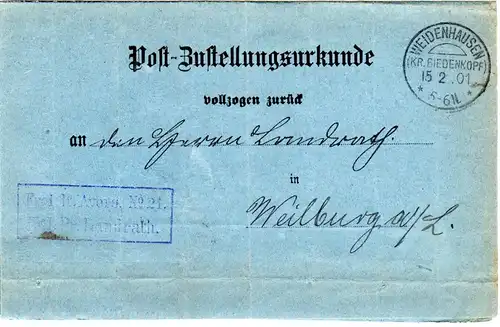 WEIDENHAUSEN
(KR. BIEDENKOPF)
15 2. 01
* 5-6N. *
Post-Zustellungsurkunde
vollzogen zurück
an den Herrn Landrath.
in
Weilburg a/L.
No. 21.
Landrath.